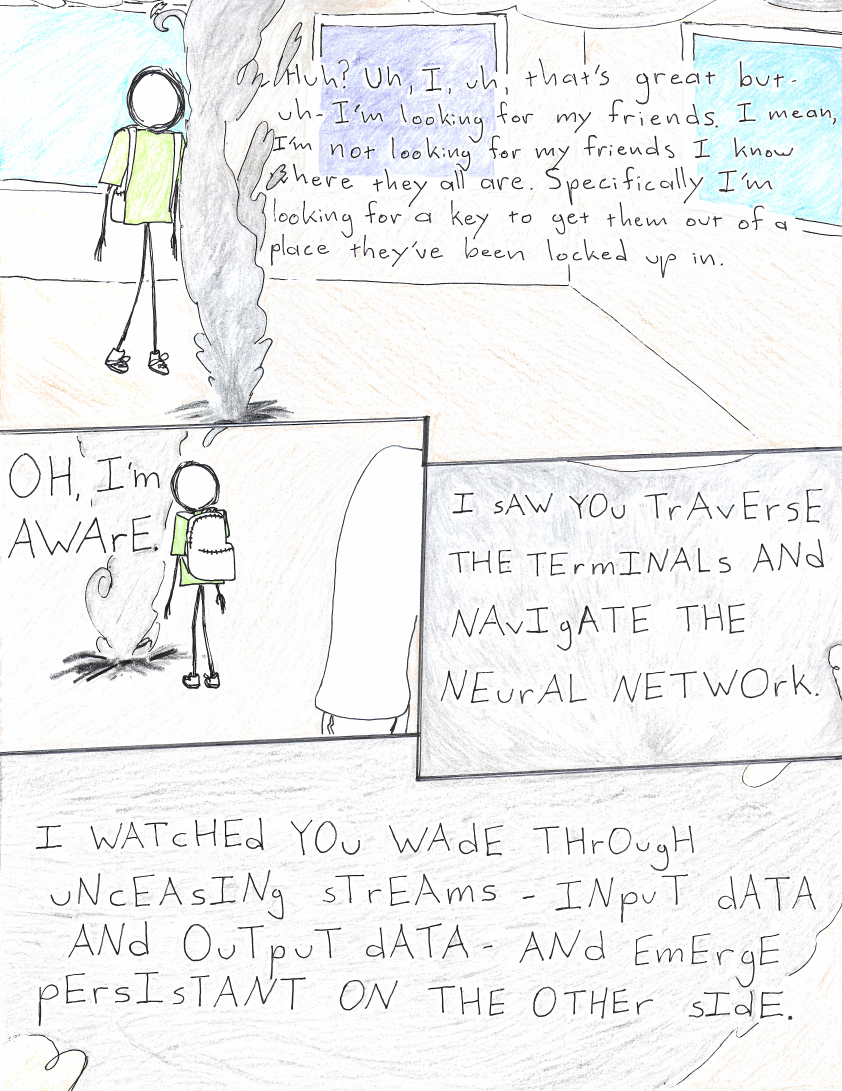 Huh? Uh, I, uh, that's great but-
uh- I'm looking for my friends. I mean,
I'm not looking for my friends I know
where they all are. Specifically I'm
looking for a key to get them out of a
place they've been locked up in.
OH, I'm
AWArE.
I sAW YOu TrAvErsE
THE TErmINALs ANd
NAvIgATE THE
NEurAL NETWOrk.
I WATcHEd YOu WAdE THrOugH
uNcEAsINg sTrEAms - INpuT dATA
ANd OuTpuT dATA - ANd EmErgE
pErsIsTANT ON THE OTHEr sIdE.